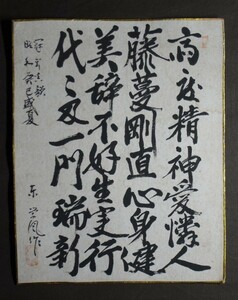 高 精神愛憐人
藤蔓剛直心身健
美辞不好生実行
代々又一門瑞新
昭和癸巳盛夏
东 作